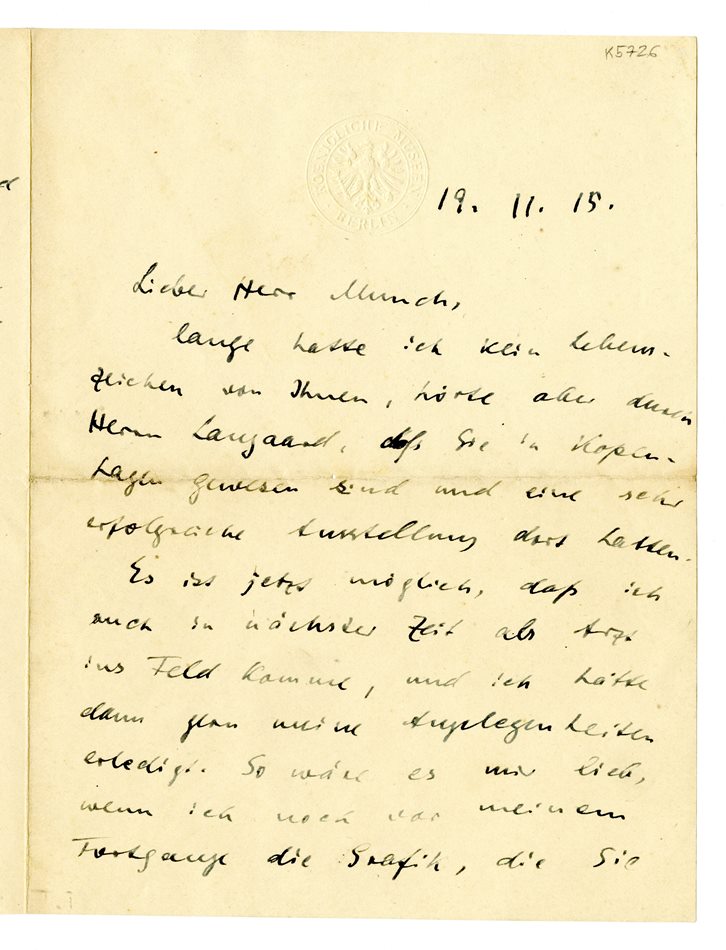 K5726
BERLIN
19. 11. 15.
Lieber Herr Munch,
lange hatte ich kein Lebens-
zeichen von Ihnen, hörte aber durch
Herrn Langaard, daß Sie in Kopen-
hagen gewesen sind und eine sehr
erfolgreiche Ausstellung dort hatten.
Es ist jetzt möglich, daß ich
auch in nächster Zeit als Arzt
ins Feld komme, und ich hätte
dann gern meine Angelegenheiten
erledigt. So wäre es mir lieb,
wenn ich noch vor meinem
Fortgange die Grafik, die Sie